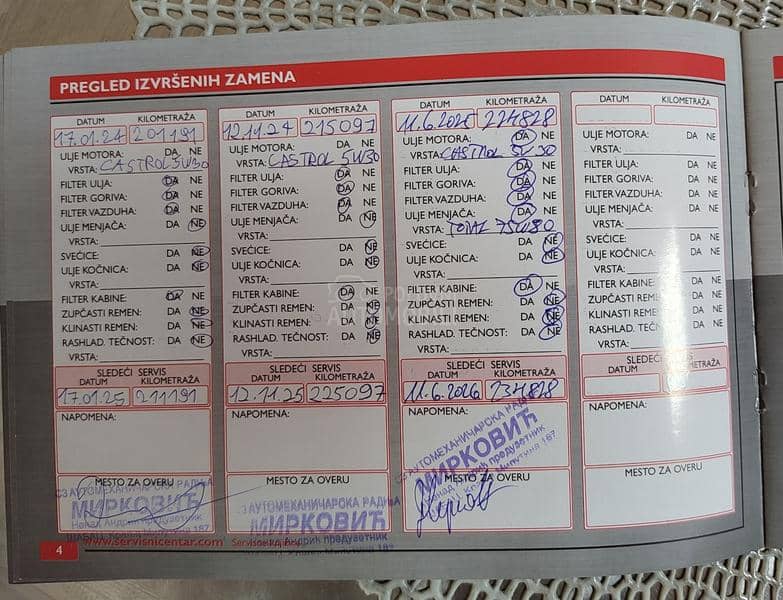 PREGLED IZVRŠENIH ZAMENA
DATUM KILOMETRAŽA
17.01.24 201191
ULJE MOTORA: DA NE
VRSTA: CASTROL 5W30
FILTER ULJA: DA NE
FILTER GORIVA: DA NE
FILTER VAZDUHA: DA NE
ULJE MENJAČA: DA NE
VRSTA:
SVEĆICE: DA NE
ULJE KOČNICA: DA NE
VRSTA:
FILTER KABINE: DA NE
ZUPČASTI REMEN: DA NE
KLINASTI REMEN: DA NE
RASHLAD. TEČNOST: DA NE
VRSTA:
SLEDEĆI SERVIS
DATUM KILOMETRAŽA
17.01.25 211191
NAPOMENA:
MESTO ZA OVERU
СЗ АУТОМЕХАНИЧАРСКА РАДЊА
МИРКОВИЋ
DATUM KILOMETRAŽA
12.11.24 215097
ULJE MOTORA: DA NE
VRSTA: CASTROL 5W30
FILTER ULJA: DA NE
FILTER GORIVA: DA NE
FILTER VAZDUHA: DA NE
ULJE MENJAČA: DA NE
VRSTA:
SVEĆICE: DA NE
ULJE KOČNICA: DA NE
VRSTA:
FILTER KABINE: DA NE
ZUPČASTI REMEN: DA NE
KLINASTI REMEN: DA NE
RASHLAD. TEČNOST: DA NE
VRSTA:
SLEDEĆI SERVIS
DATUM KILOMETRAŽA
12.11.25 225097
NAPOMENA:
MESTO ZA OVERU
АУТОМЕХАНИЧАРСКА РАДЊА
МИРКОВИЋ
DATUM KILOMETRAŽA
11.6.2025 224828
ULJE MOTORA: DA NE
VRSTA: CASTROL 5W30
FILTER ULJA: DA NE
FILTER GORIVA: DA NE
FILTER VAZDUHA: DA NE
ULJE MENJAČA: DA NE
VRSTA: TOTAL 75W80
SVEĆICE: DA NE
ULJE KOČNICA: DA NE
VRSTA:
FILTER KABINE: DA NE
ZUPČASTI REMEN: DA NE
KLINASTI REMEN: DA NE
RASHLAD. TEČNOST: DA NE
VRSTA:
SLEDEĆI SERVIS
DATUM KILOMETRAŽA
11.6.2026 234828
NAPOMENA:
АУТОМЕХАНИЧАРСКА РАДЊА
МИРКОВИЋ
MESTO ZA OVERU
DATUM KILOMETRAŽA
ULJE MOTORA: DA NE
VRSTA:
FILTER ULJA: DA NE
FILTER GORIVA: DA NE
FILTER VAZDUHA: DA NE
ULJE MENJAČA: DA NE
VRSTA:
SVEĆICE: DA NE
ULJE KOČNICA: DA NE
VRSTA:
FILTER KABINE: DA NE
ZUPČASTI REMEN: DA NE
KLINASTI REMEN: DA NE
RASHLAD. TEČNOST: DA NE
VRSTA:
SLEDEĆI SERVIS
DATUM KILOMETRAŽA
NAPOMENA:
MESTO ZA OVERU
4 www.servisnicentar.com